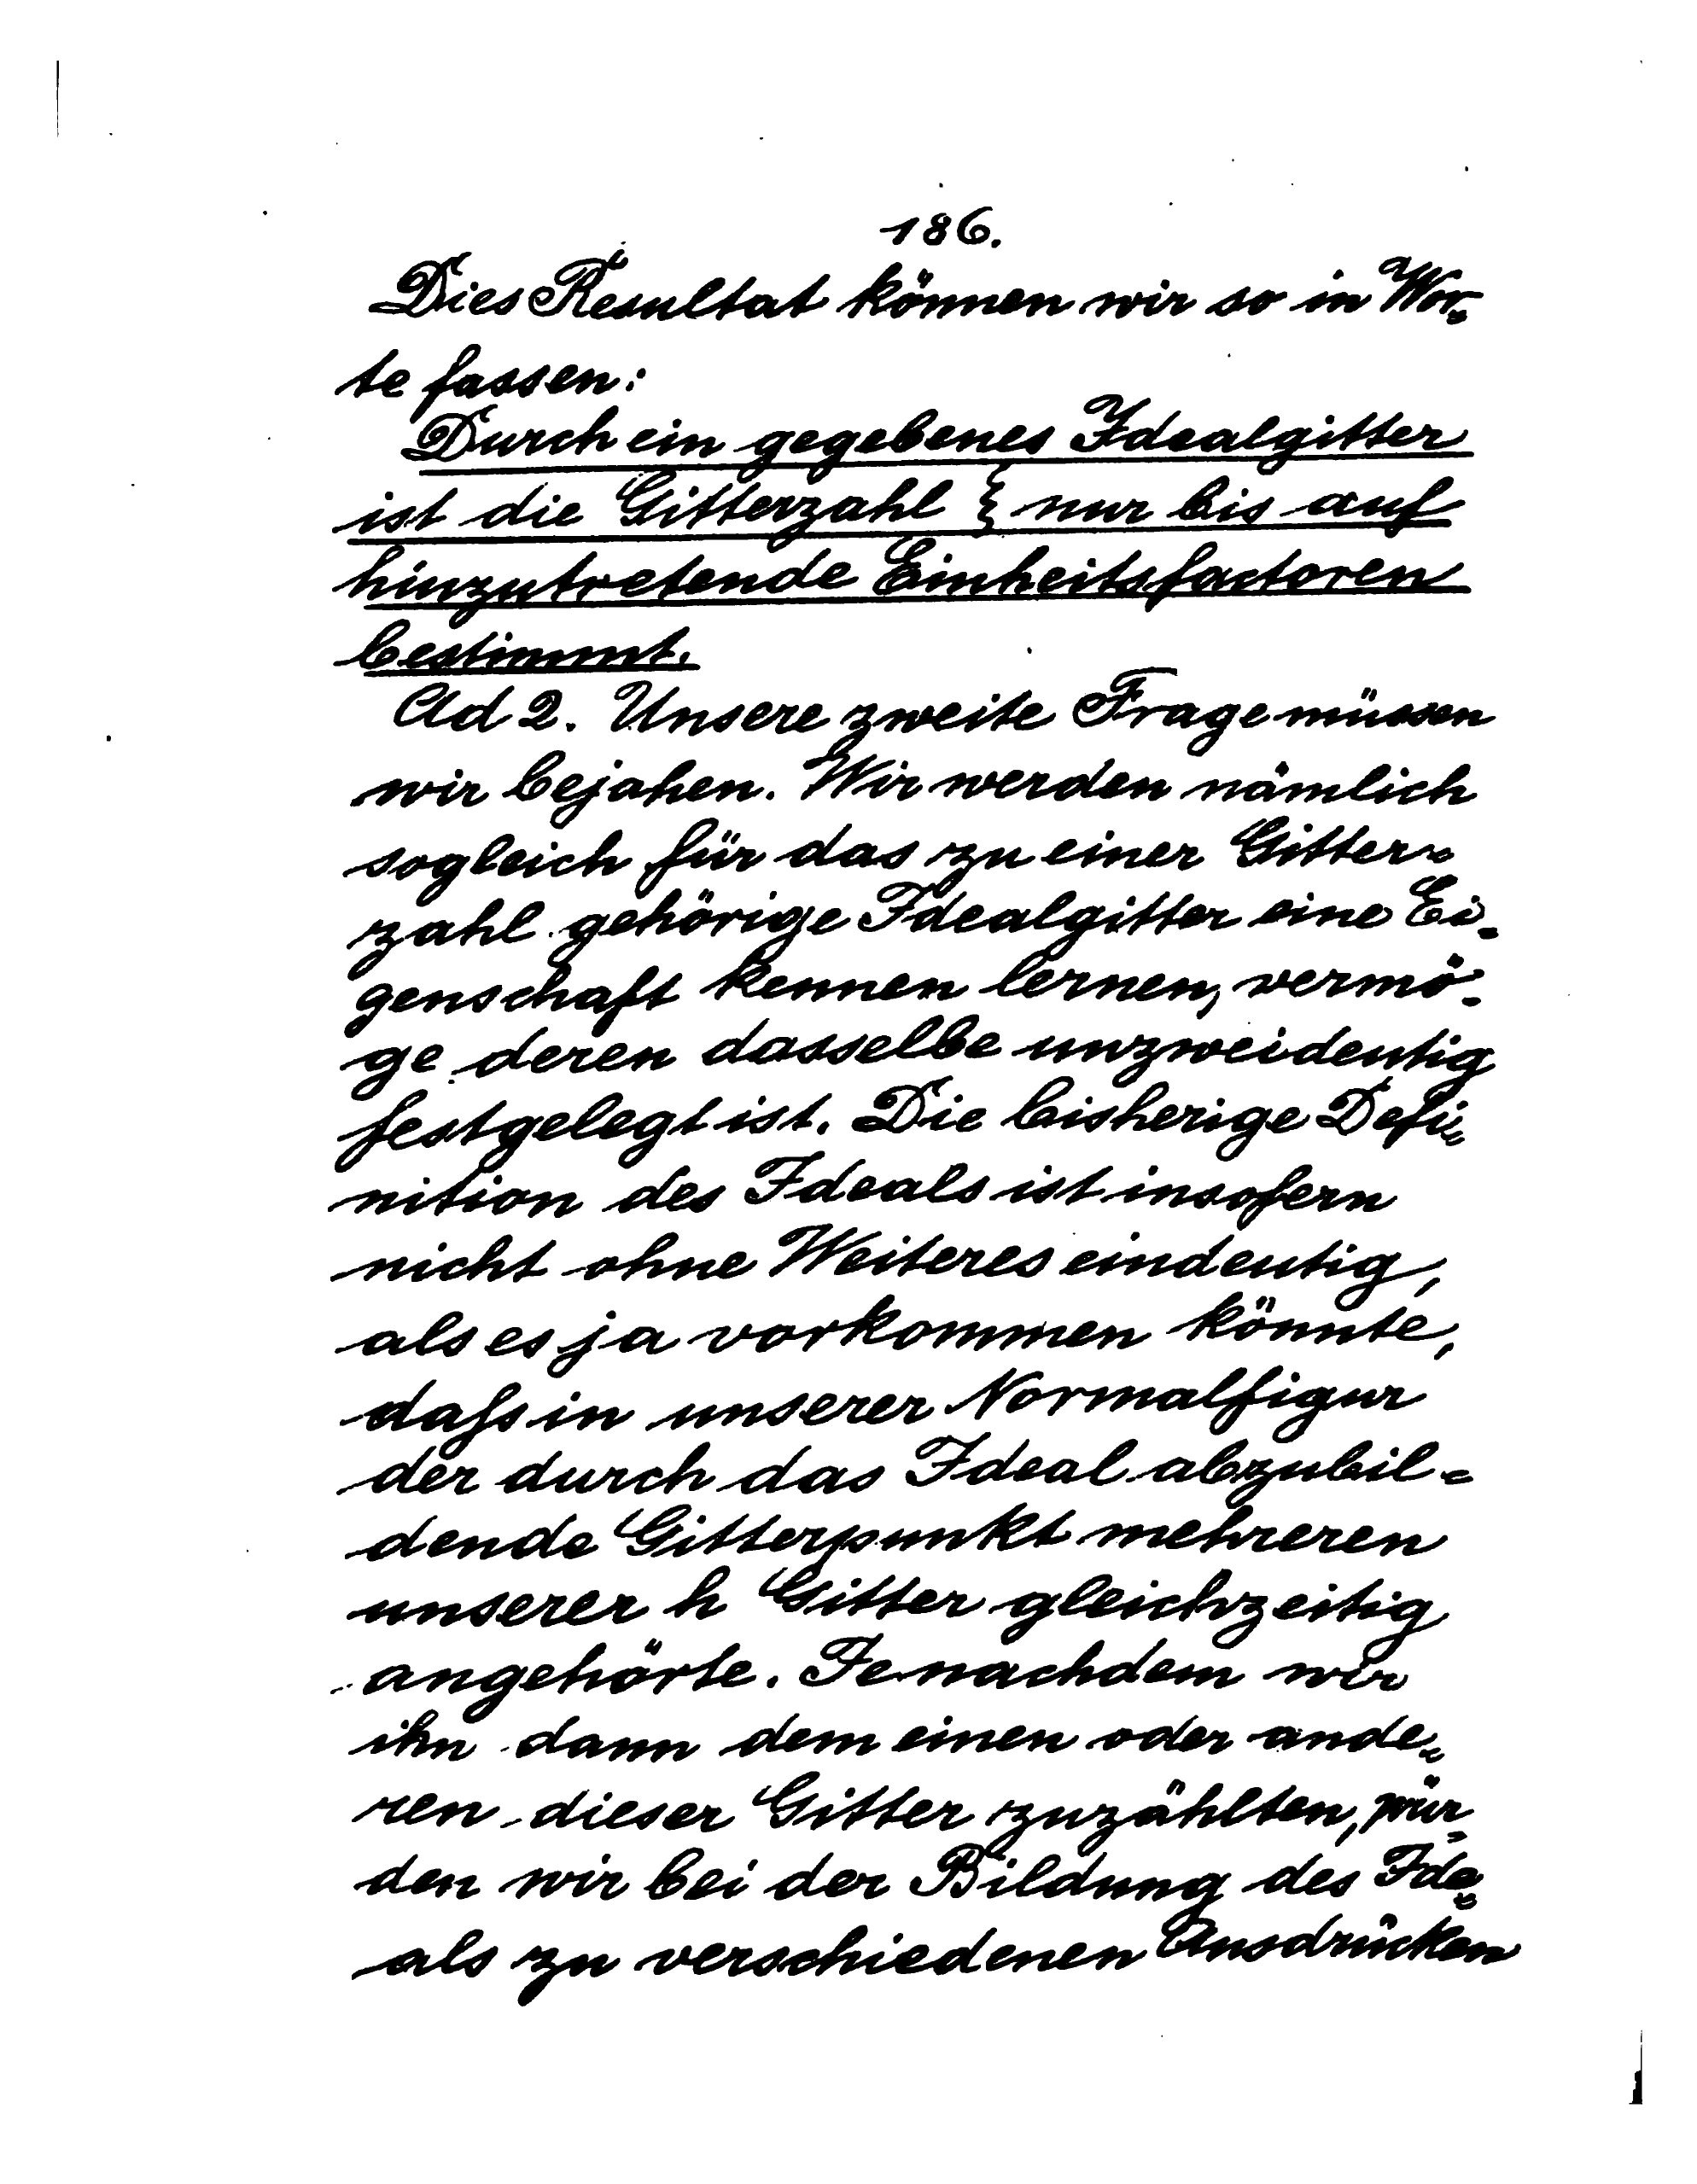 186.
Dies Resultat können wir so in Wor-
te fassen:
Durch ein gegebenes Idealgitter
ist die Gitterzahl ξ nur bis auf
hinzutretende Einheitsfactoren
bestimmt.
Ad 2. Unsere zweite Frage müssen
wir bejahen. Wir werden nämlich
sogleich für das zu einer Gitter-
zahl gehörige Idealgitter eine Ei-
genschaft kennen lernen, vermö-
ge deren dasselbe unzweideutig
festgelegt ist. Die bisherige Defi-
nition des Ideals ist insofern
nicht ohne Weiteres eindeutig,
als es ja vorkommen könnte,
daſs in unserer Normalfigur
der durch das Ideal abzubil-
dende Gitterpunkt mehreren
unserer h Gitter gleichzeitig
angehörte. Je nachdem wir
ihn dann dem einen oder ande-
ren dieser Gitter zuzählten, wür-
den wir bei der Bildung des Ide-
als zu verschiedenen Ausdrücken